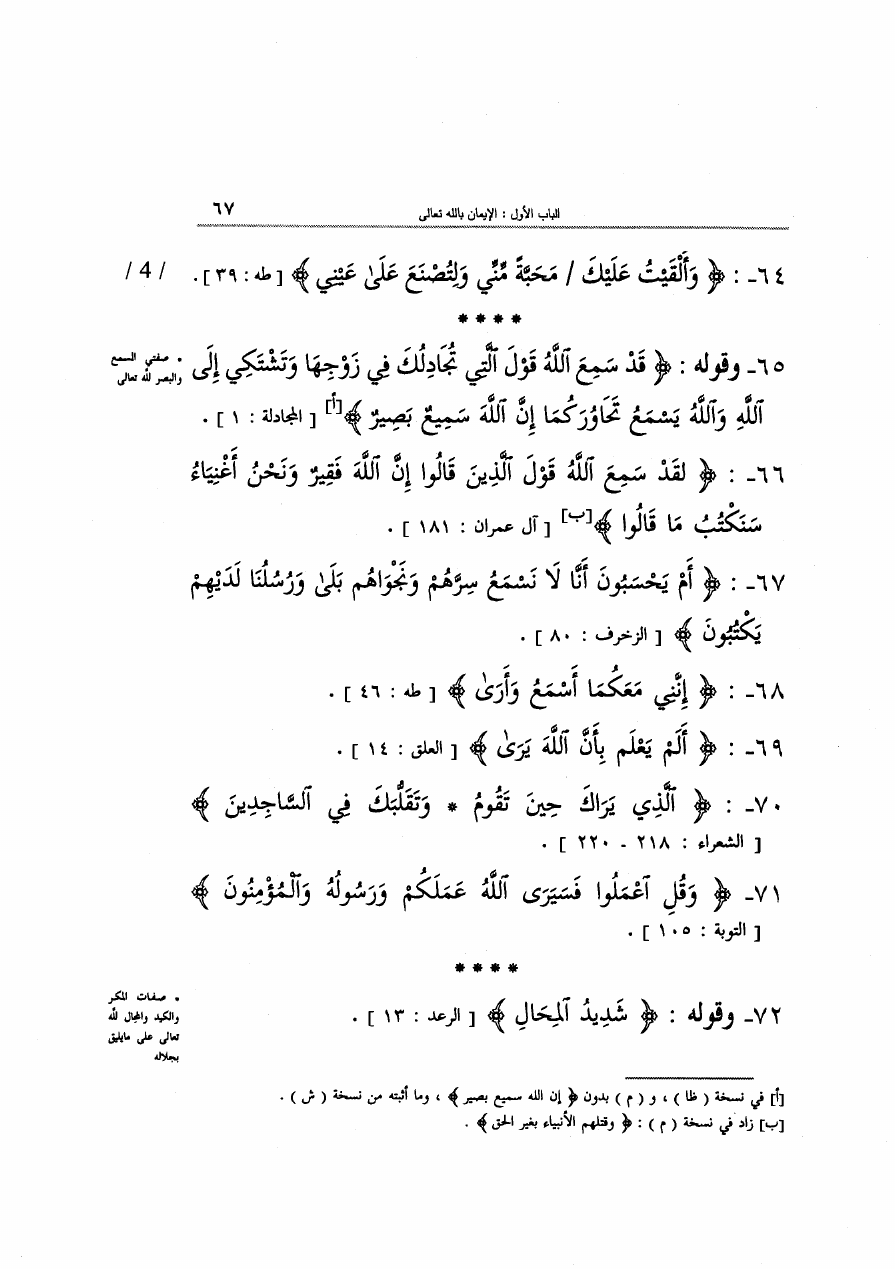 الباب الأول : الإيمان بالله تعالى ٦٧
٦٤ـ : ﴿ وَأَلْقَيْتُ عَلَيْكَ / مَحَبَّةً مِّنِّي وَلِتُصْنَعَ عَلَىٰ عَيْنِي ﴾ [ طه : ٣٩ ] . / 4 /
* * * *
٦٥ـ وقوله : ﴿ قَدْ سَمِعَ ٱللَّهُ قَوْلَ ٱلَّتِي تُجَادِلُكَ فِي زَوْجِهَا وَتَشْتَكِي إِلَى
٠ صفتي السمع
والبصر لله تعالى
ٱللَّهِ وَٱللَّهُ يَسْمَعُ تَحَاوُرَكُمَا إِنَّ ٱللَّهَ سَمِيعٌ بَصِيرٌ ﴾[أ] [ المجادلة : ١ ] .
٦٦ـ : ﴿ لَقَدْ سَمِعَ ٱللَّهُ قَوْلَ ٱلَّذِينَ قَالُوا إِنَّ ٱللَّهَ فَقِيرٌ وَنَحْنُ أَغْنِيَاءُ
سَنَكْتُبُ مَا قَالُوا ﴾[ب] [ آل عمران : ١٨١ ] .
٦٧ـ : ﴿ أَمْ يَحْسَبُونَ أَنَّا لَا نَسْمَعُ سِرَّهُمْ وَنَجْوَاهُم بَلَىٰ وَرُسُلُنَا لَدَيْهِمْ
يَكْتُبُونَ ﴾ [ الزخرف : ٨٠ ] .
٦٨ـ : ﴿ إِنَّنِي مَعَكُمَا أَسْمَعُ وَأَرَىٰ ﴾ [ طه : ٤٦ ] .
٦٩ـ : ﴿ أَلَمْ يَعْلَم بِأَنَّ ٱللَّهَ يَرَىٰ ﴾ [ العلق : ١٤ ] .
٧٠ـ : ﴿ ٱلَّذِي يَرَاكَ حِينَ تَقُومُ * وَتَقَلُّبَكَ فِي ٱلسَّاجِدِينَ ﴾
[ الشعراء : ٢١٨ - ٢٢٠ ] .
٧١ـ ﴿ وَقُلِ ٱعْمَلُوا فَسَيَرَى ٱللَّهُ عَمَلَكُمْ وَرَسُولُهُ وَٱلْمُؤْمِنُونَ ﴾
[ التوبة : ١٠٥ ] .
* * * *
٧٢ـ وقوله : ﴿ شَدِيدُ ٱلْمِحَالِ ﴾ [ الرعد : ١٣ ] .
٠ صفات المكر
والكيد والمحال لله
تعالى على مايليق
بجلاله
[أ] في نسخة ( ظا ) ، و ( م ) بدون ﴿ إن الله سميع بصير ﴾ ، وما أثبته من نسخة ( ش ) .
[ب] زاد في نسخة ( م ) : ﴿ وقتلهم الأنبياء بغير الحق ﴾ .